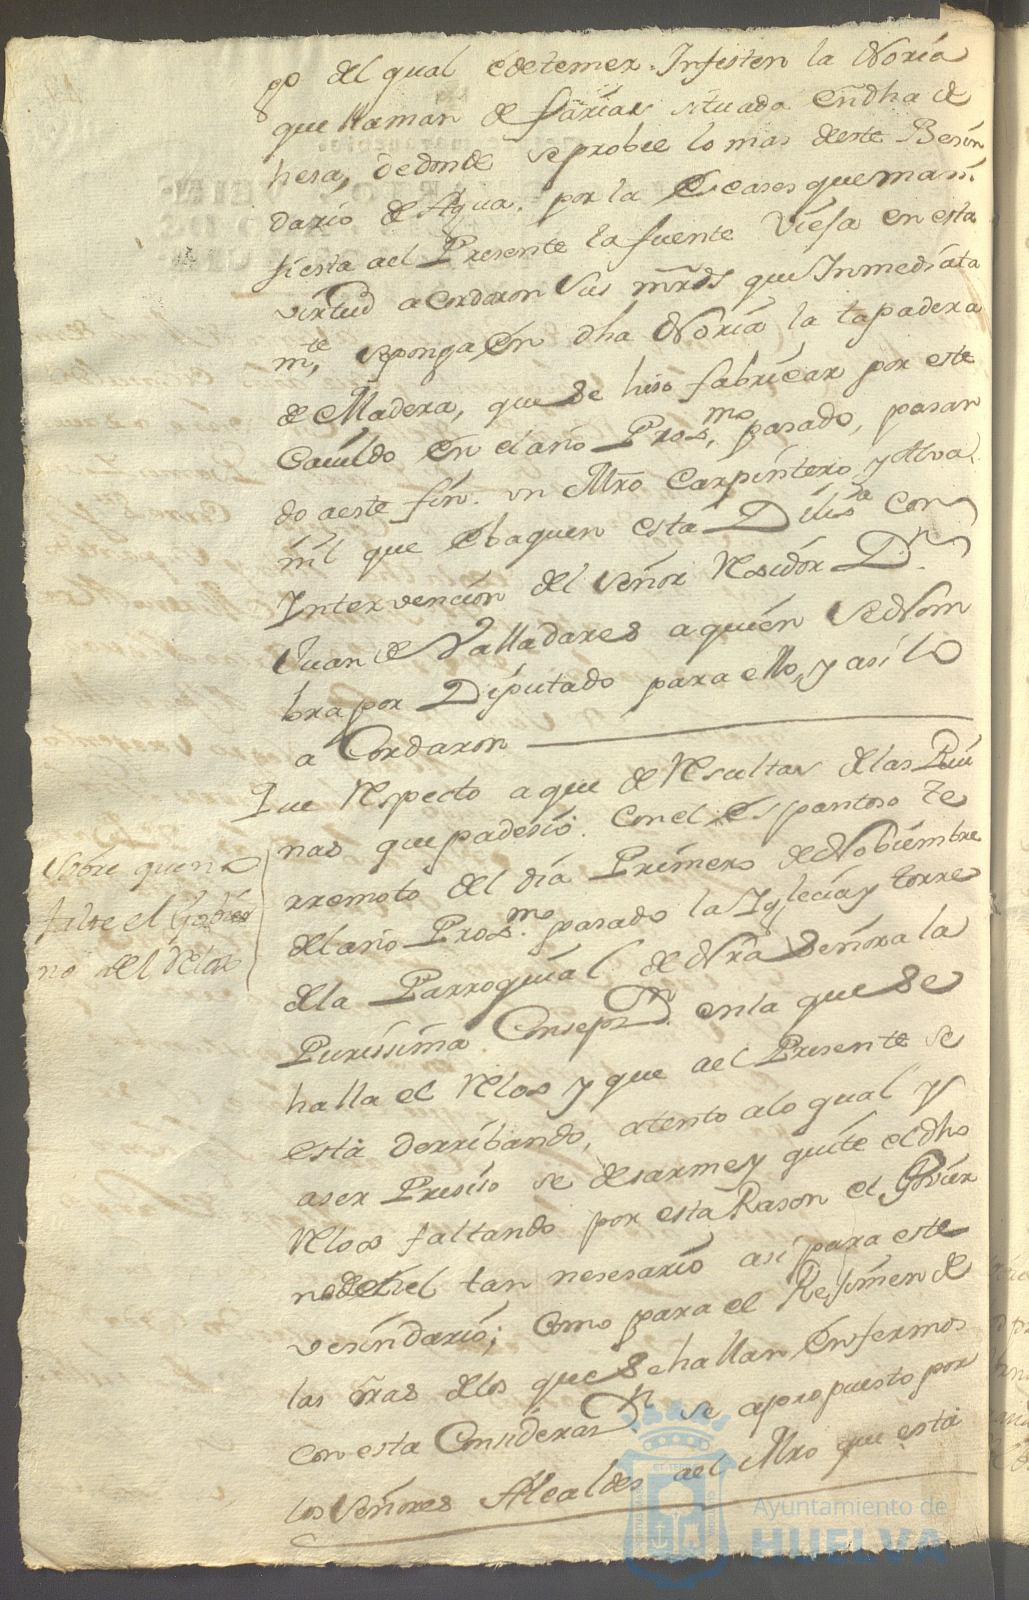 po del qual es de temer Infesten la Noria
que llaman de farias situada en dha de
hesa, de donde se probee lo mas deste Besin
dario de Agua, por la Escases que mani
fiesta ael Presente la fuente Viesa en esta
virtud acordaron Sus mrds que Inmediata
mte, se ponga En dha Noria la tapadera
de Madera, que se hiso fabricar por este
Cavildo En el año Proxmo, pasado, pasan
do a este fin un Mro Carpintero, y Alva
ñil que Ebaquen esta Dilisa con
Intervencion del Señor Rexidor Dn
Juan de Valladares a quien se Nom
bra por Diputado para ello, y asi lo
a Cordaron
Que Respecto a que de Resultas de las Rui
nas que padesio con el Espantoso Te
rremoto del dia Primero de Nobiembre
del año Proxmo pasado la Iglecia y torre
de la Parroquial de Nra Señora la
Purissima Consepn en la que se
halla el Relox y que ael Presente se
està derribando, atento a lo qual y
a ser Presiso se desarme y quite el dho
Relox faltando por esta Rason el Govier
no del tan nesesario asi para este
vesindario; Como para el Rejimen de
las oras de los que se hallan Enfermos
con esta Considerasn se a propuesto por
los Señores Alcaldes ael Mro que està
Sobre que no
falte el Gobier
no del Relox
Ayuntamiento de
HUELVA